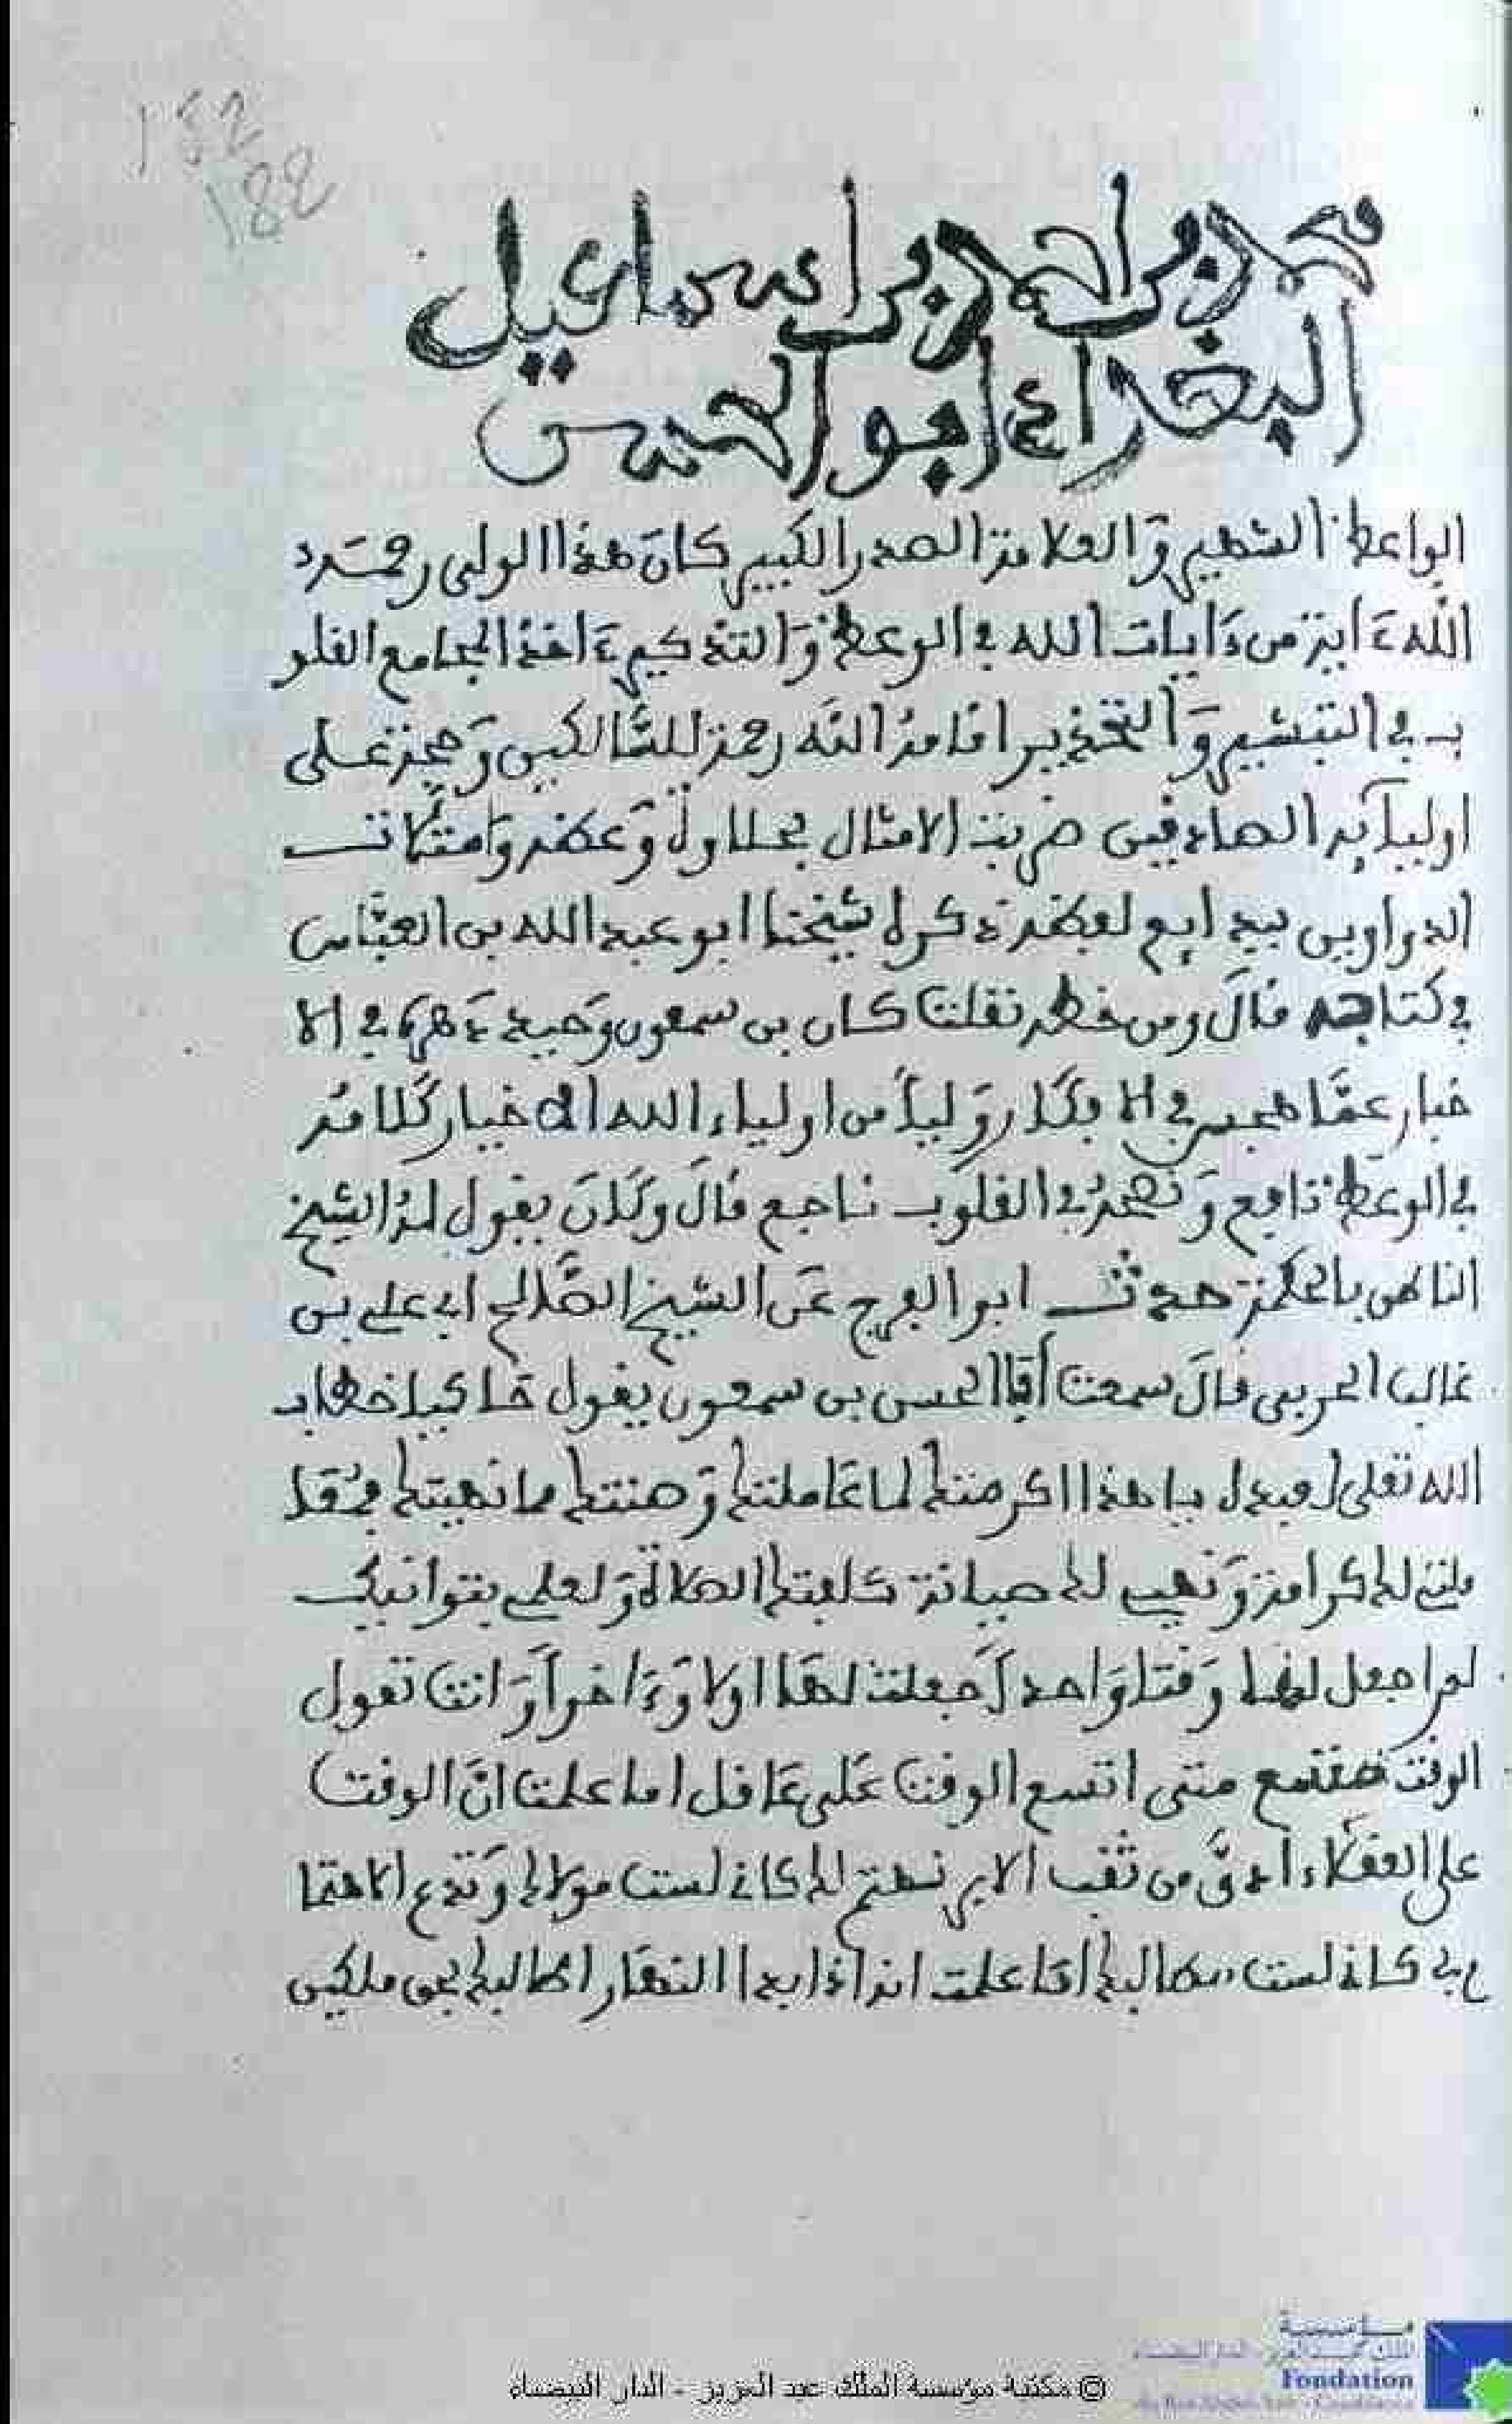 152
188
محمد بن احمد بن اسماعيل
البغدادي ابو الحسن
الواعظ الشهير والعلامة الصدر الكبير كان هذا الولي رحمه
الله ءاية من ءايات الله في الوعظ والتذكير ءاخذا بمجامع القلو
ب في التبشير والتحذير اقامه الله رحمة للسالكين وحجة على
اوليائه الصادقين ضربت الامثال بحلاوة وعظه وامتلات
الدواوين ببدايع لفظه ذكره شيخنا ابو عبد الله بن العباس
في كتابه قال ومن خطه نقلت كان بن سمعون وحيد دهره في الا
خبار عما هجس في الا فكار وليا من اولياء الله الاخيار كلامه
في الوعظ نافع ونصحه في القلوب ناجع قال وكان يقول له الشيخ
الناطق بالحكمة حدث ابو الفرج عن الشيخ الصالح ابي علي بن
غالب الحربي قال سمعت أبا الحسن بن سمعون يقول حاكيا خطاب
الله تعلى لعبده يا هذا اكرمتك لما عاملتك وصنتك ما نهيتك فمعا
ملتي لك كرامة ونهيي لك صيانة كلفتك الصلاة ولعلمي بتوانيك
لم اجعل لها وقتا واحد جعلت لها اولا وءاخرا وانت تقول
الوقت متسع متى اتسع الوقت على عاقل اما علمت ان الوقت
على العقلاء ادق من ثقب الابر نهتم لك كاني لست مولاك وتدع الاهتما
م بي كاني لست مطالبك اما علمت انه اذا بدا النهار اطالبك بحق ملكين
© مكتبة مؤسسة الملك عبد العزيز - الدار البيضاء
مؤسسة
Fondation